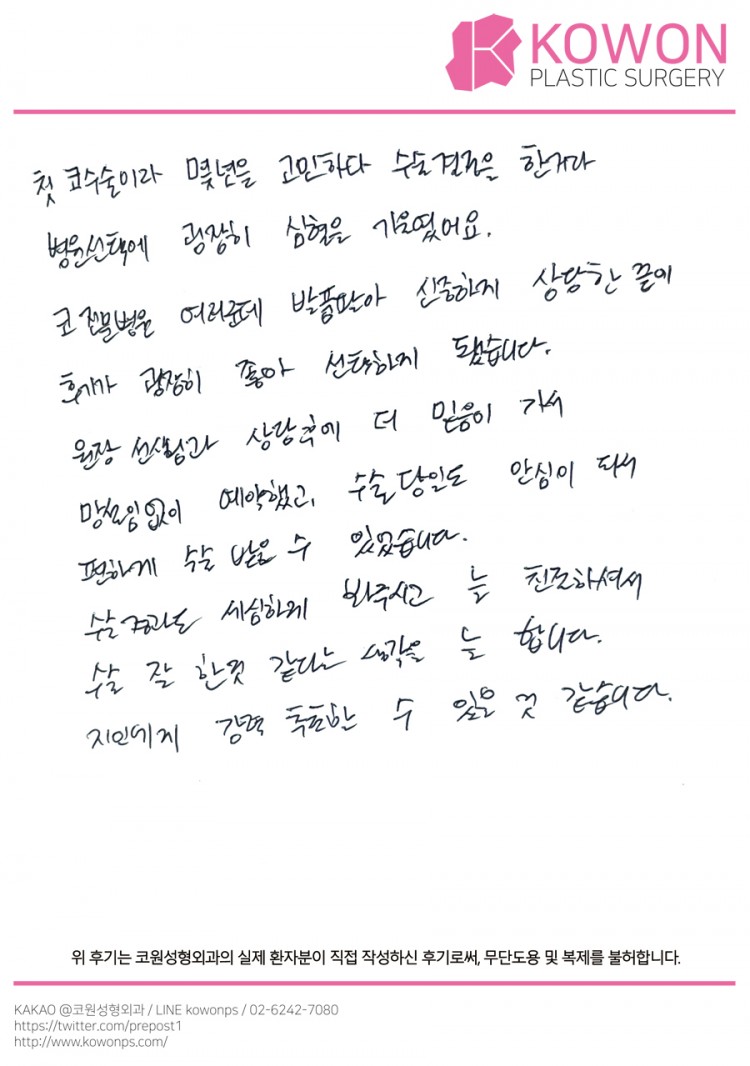 KOWON
PLASTIC SURGERY
첫 코수술이라 몇년을 고민하다 수술결정을 한거라
병원선택에 굉장히 심혈을 기울였어요.
코 전문병원 여러군데 발품팔아 신중하게 상담한 끝에
후기가 굉장히 좋아 선택하게 됐습니다.
원장 선생님과 상담후에 더 믿음이 가서
망설임없이 예약했고, 수술당일도 안심이 되서
편하게 수술 받을 수 있었습니다.
수술 경과도 세심하게 봐주시고 늘 친절하셔서
수술 잘 한것 같다는 생각을 늘 합니다.
지인에게 강력 추천할 수 있을 것 같습니다.
위 후기는 코원성형외과의 실제 환자분이 직접 작성하신 후기로써, 무단도용 및 복제를 불허합니다.
KAKAO @코원성형외과 / LINE kowonps / 02-6242-7080
https://twitter.com/prepost1
http://www.kowonps.com/